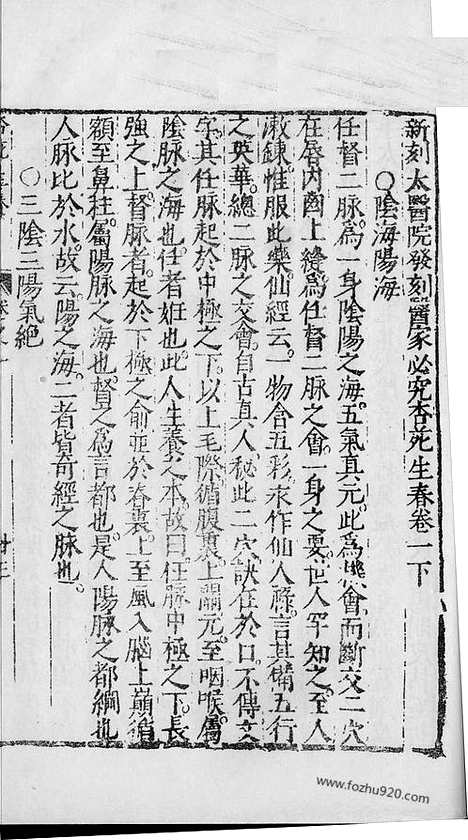 新刻太醫院發刻醫家必究杏苑生春卷一下
○陰海陽海
任督二脉為一身陰陽之海五氣真元此為機會而斷交二穴
在唇内齒上縫為任督二脉之會一身之要世人罕知之至人
漱鍊惟服此藥仙經云一物含五彩永作仙人祿言其備五行
之英華總二脉之交會自古真人秘此二穴訣在於口不傳文
字其任脉起於中極之下以上毛際循腹裏上關元至咽喉屬
陰脉之海也任者妊也此人生養之本故曰任脉中極之下長
強之上督脉者起於下極之俞並於脊裏上至風入腦上巔循
額至鼻柱屬陽脉之海也督之為言都也是人陽脉之都綱也
人脉比於水故云陽之海二者皆奇經之脉也
○三陰三陽氣絕
www.fozhu920.com